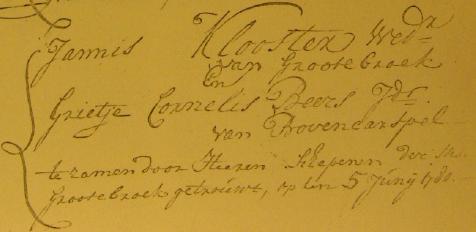 Jannis Klooster Wedr
van Grootebroek
En
Grietje Cornelis Beers Jdr.
van Bovencarspel
te zamen door Heeren Schepenen der
Grootebroek getrouwt, op den 5 Junij 1780.